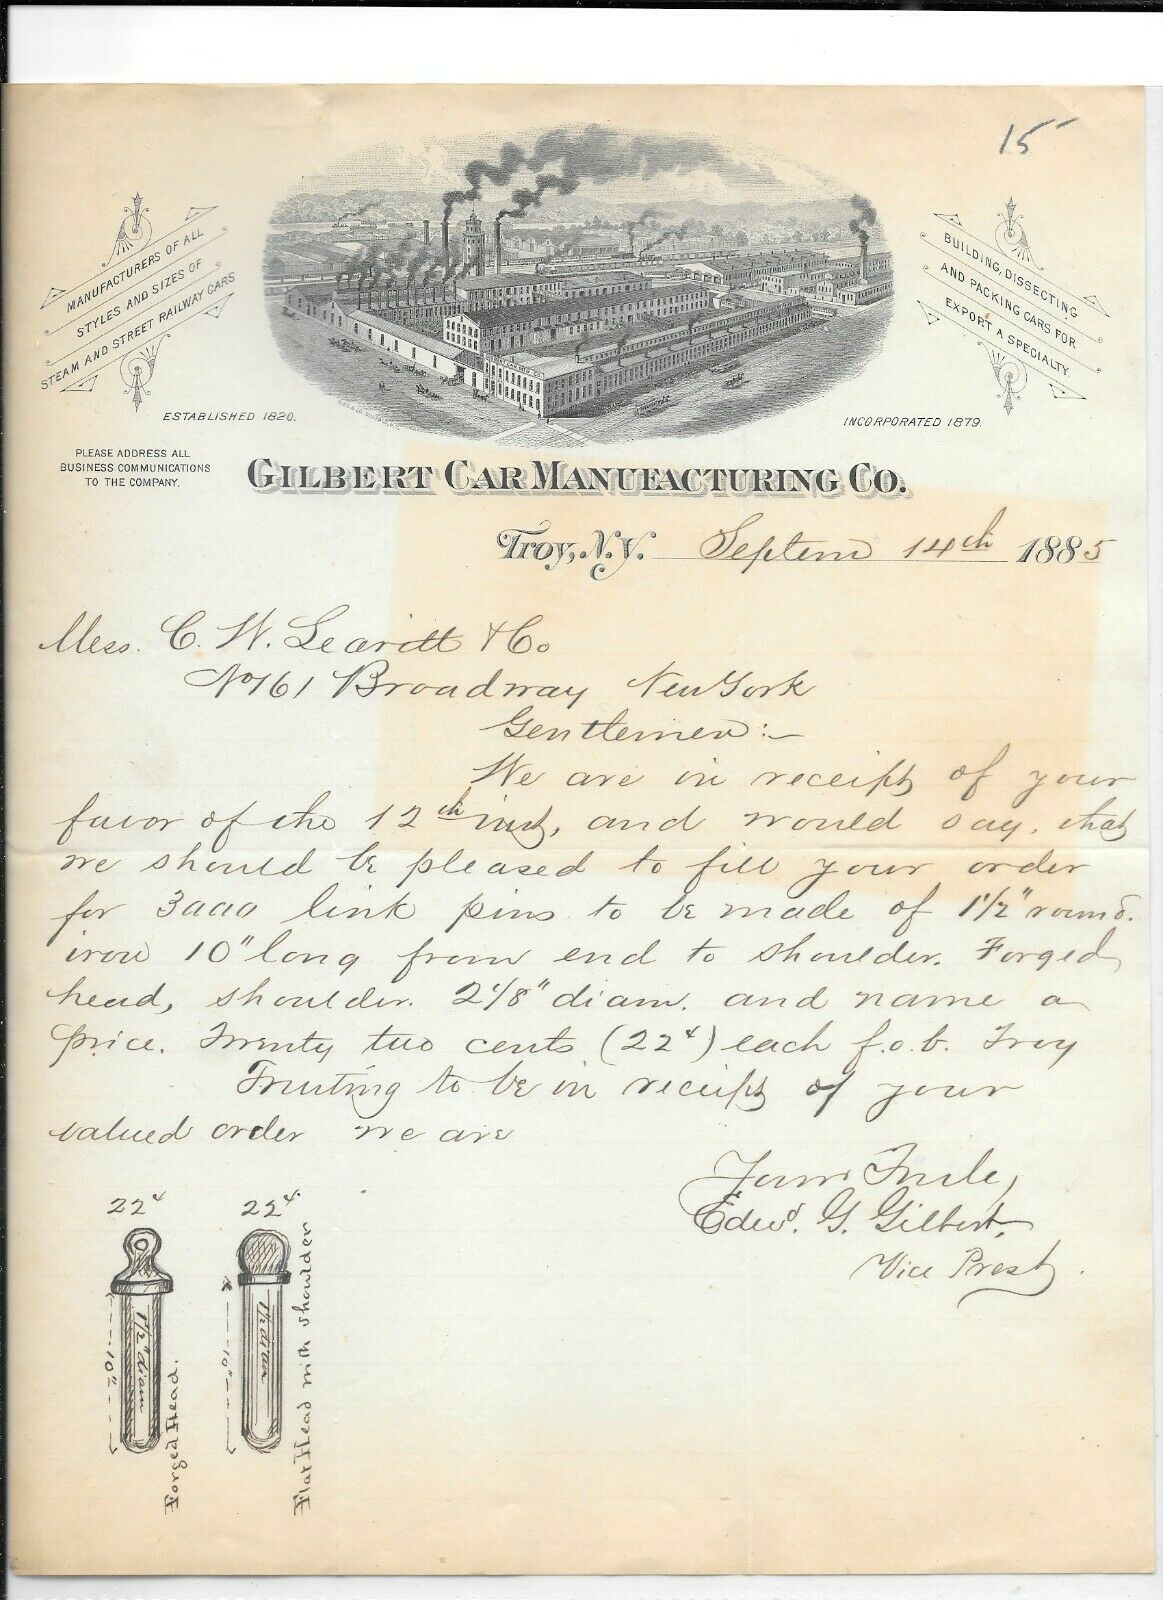 15
MANUFACTURERS OF ALL
STYLES AND SIZES OF
STEAM AND STREET RAILWAY CARS
BUILDING, DISSECTING
AND PACKING CARS FOR
EXPORT A SPECIALTY.
ESTABLISHED 1820.
INCORPORATED 1879.
PLEASE ADDRESS ALL
BUSINESS COMMUNICATIONS
TO THE COMPANY.
GILBERT CAR MANUFACTURING CO.
Troy, N.Y. Septem 14th 1885
Mess. C. W. Leavitt & Co
No 161 Broadway New York
Gentlemen:-
We are in receipt of your
favor of the 12th inst, and would say, that
we should be pleased to fill your order
for 3000 link pins to be made of 1 1/2" round.
iron 10" long from end to shoulder. Forged
head, shoulder. 2 1/8" diam. and name a
price. Twenty two cents (22¢) each f.o.b. Troy
Trusting to be in receipt of your
valued order we are
Yours Truly,
Edwd. G. Gilbert,
Vice Prest.
22¢ 22¢
10" 1 1/2" diam Forged Head.
10" 1 1/2 diam Flat Head with shoulder